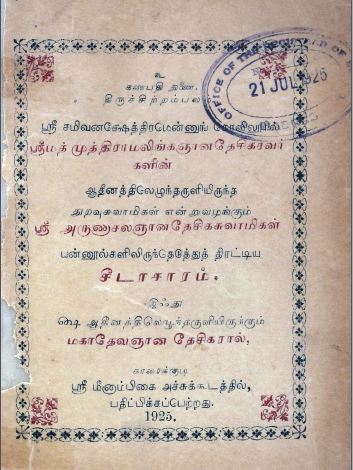 உ
கணபதி துணை.
திருச்சிற்றம்பலம்.
ஸ்ரீ சமிவனக்ஷேத்திரமென்னுங் கோவிலூரில்
ஸ்ரீமத் முத்திராமலிங்கஞானதேசிகரவர்
களின்
ஆதீனத்திலெழுந்தருளியிருந்த
துறவுசுவாமிகள் என்றுவழங்கும்
ஸ்ரீ அருணாசலஞானதேசிகசுவாமிகள்
பன்னூல்களிலிருந்தெடுத்துத் திரட்டிய
சீடாசாரம்.
இஃது
௸ ஆதீனத்திலெழுந்தருளியிருக்கும்
மகாதேவஞான தேசிகரால்,
காரைக்குடி
ஸ்ரீ மீனாம்பிகை அச்சுக்கூடத்தில்,
பதிப்பிக்கப்பெற்றது.
1925.
OFFICE OF THE
21 JUL 1926